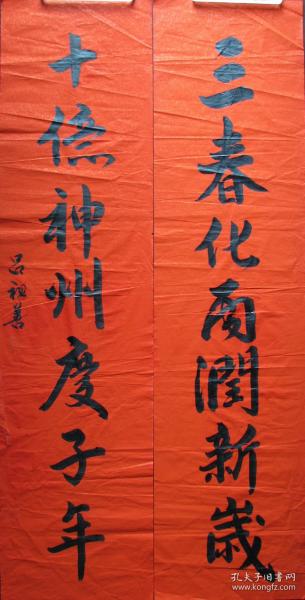 三春化雨潤新歲
十億神州慶子年
吕祖善
孔夫子旧书网